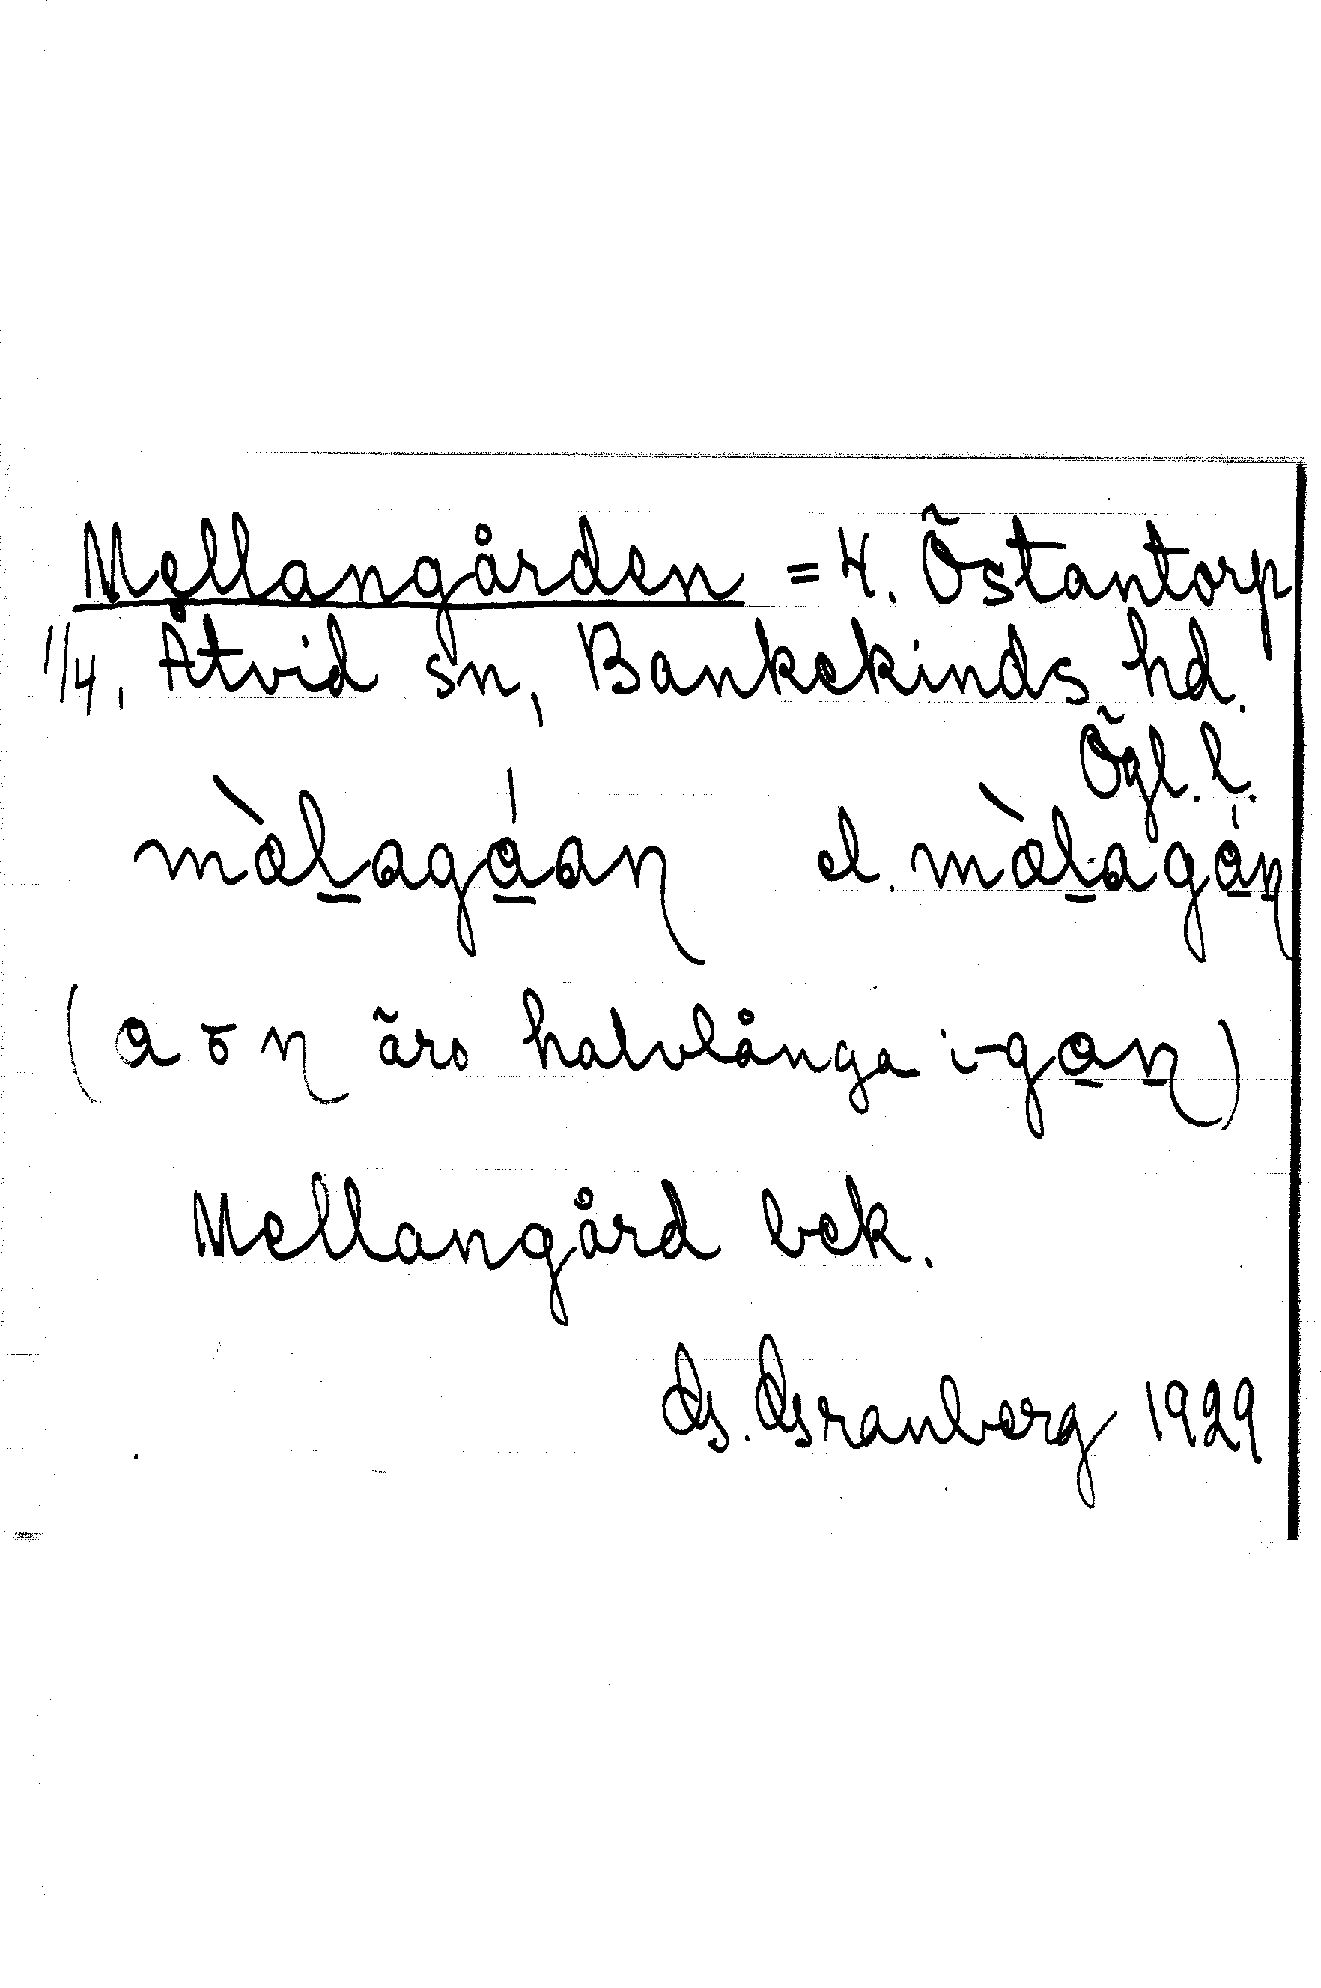 Mellangården = 4. Östantorp
1/4, Åtvid sn, Bankekinds hd.
Ögl. l.
(a o ƞ äro halvlånga i -gaƞ)
Mellangård bek.
G. Granberg 1929